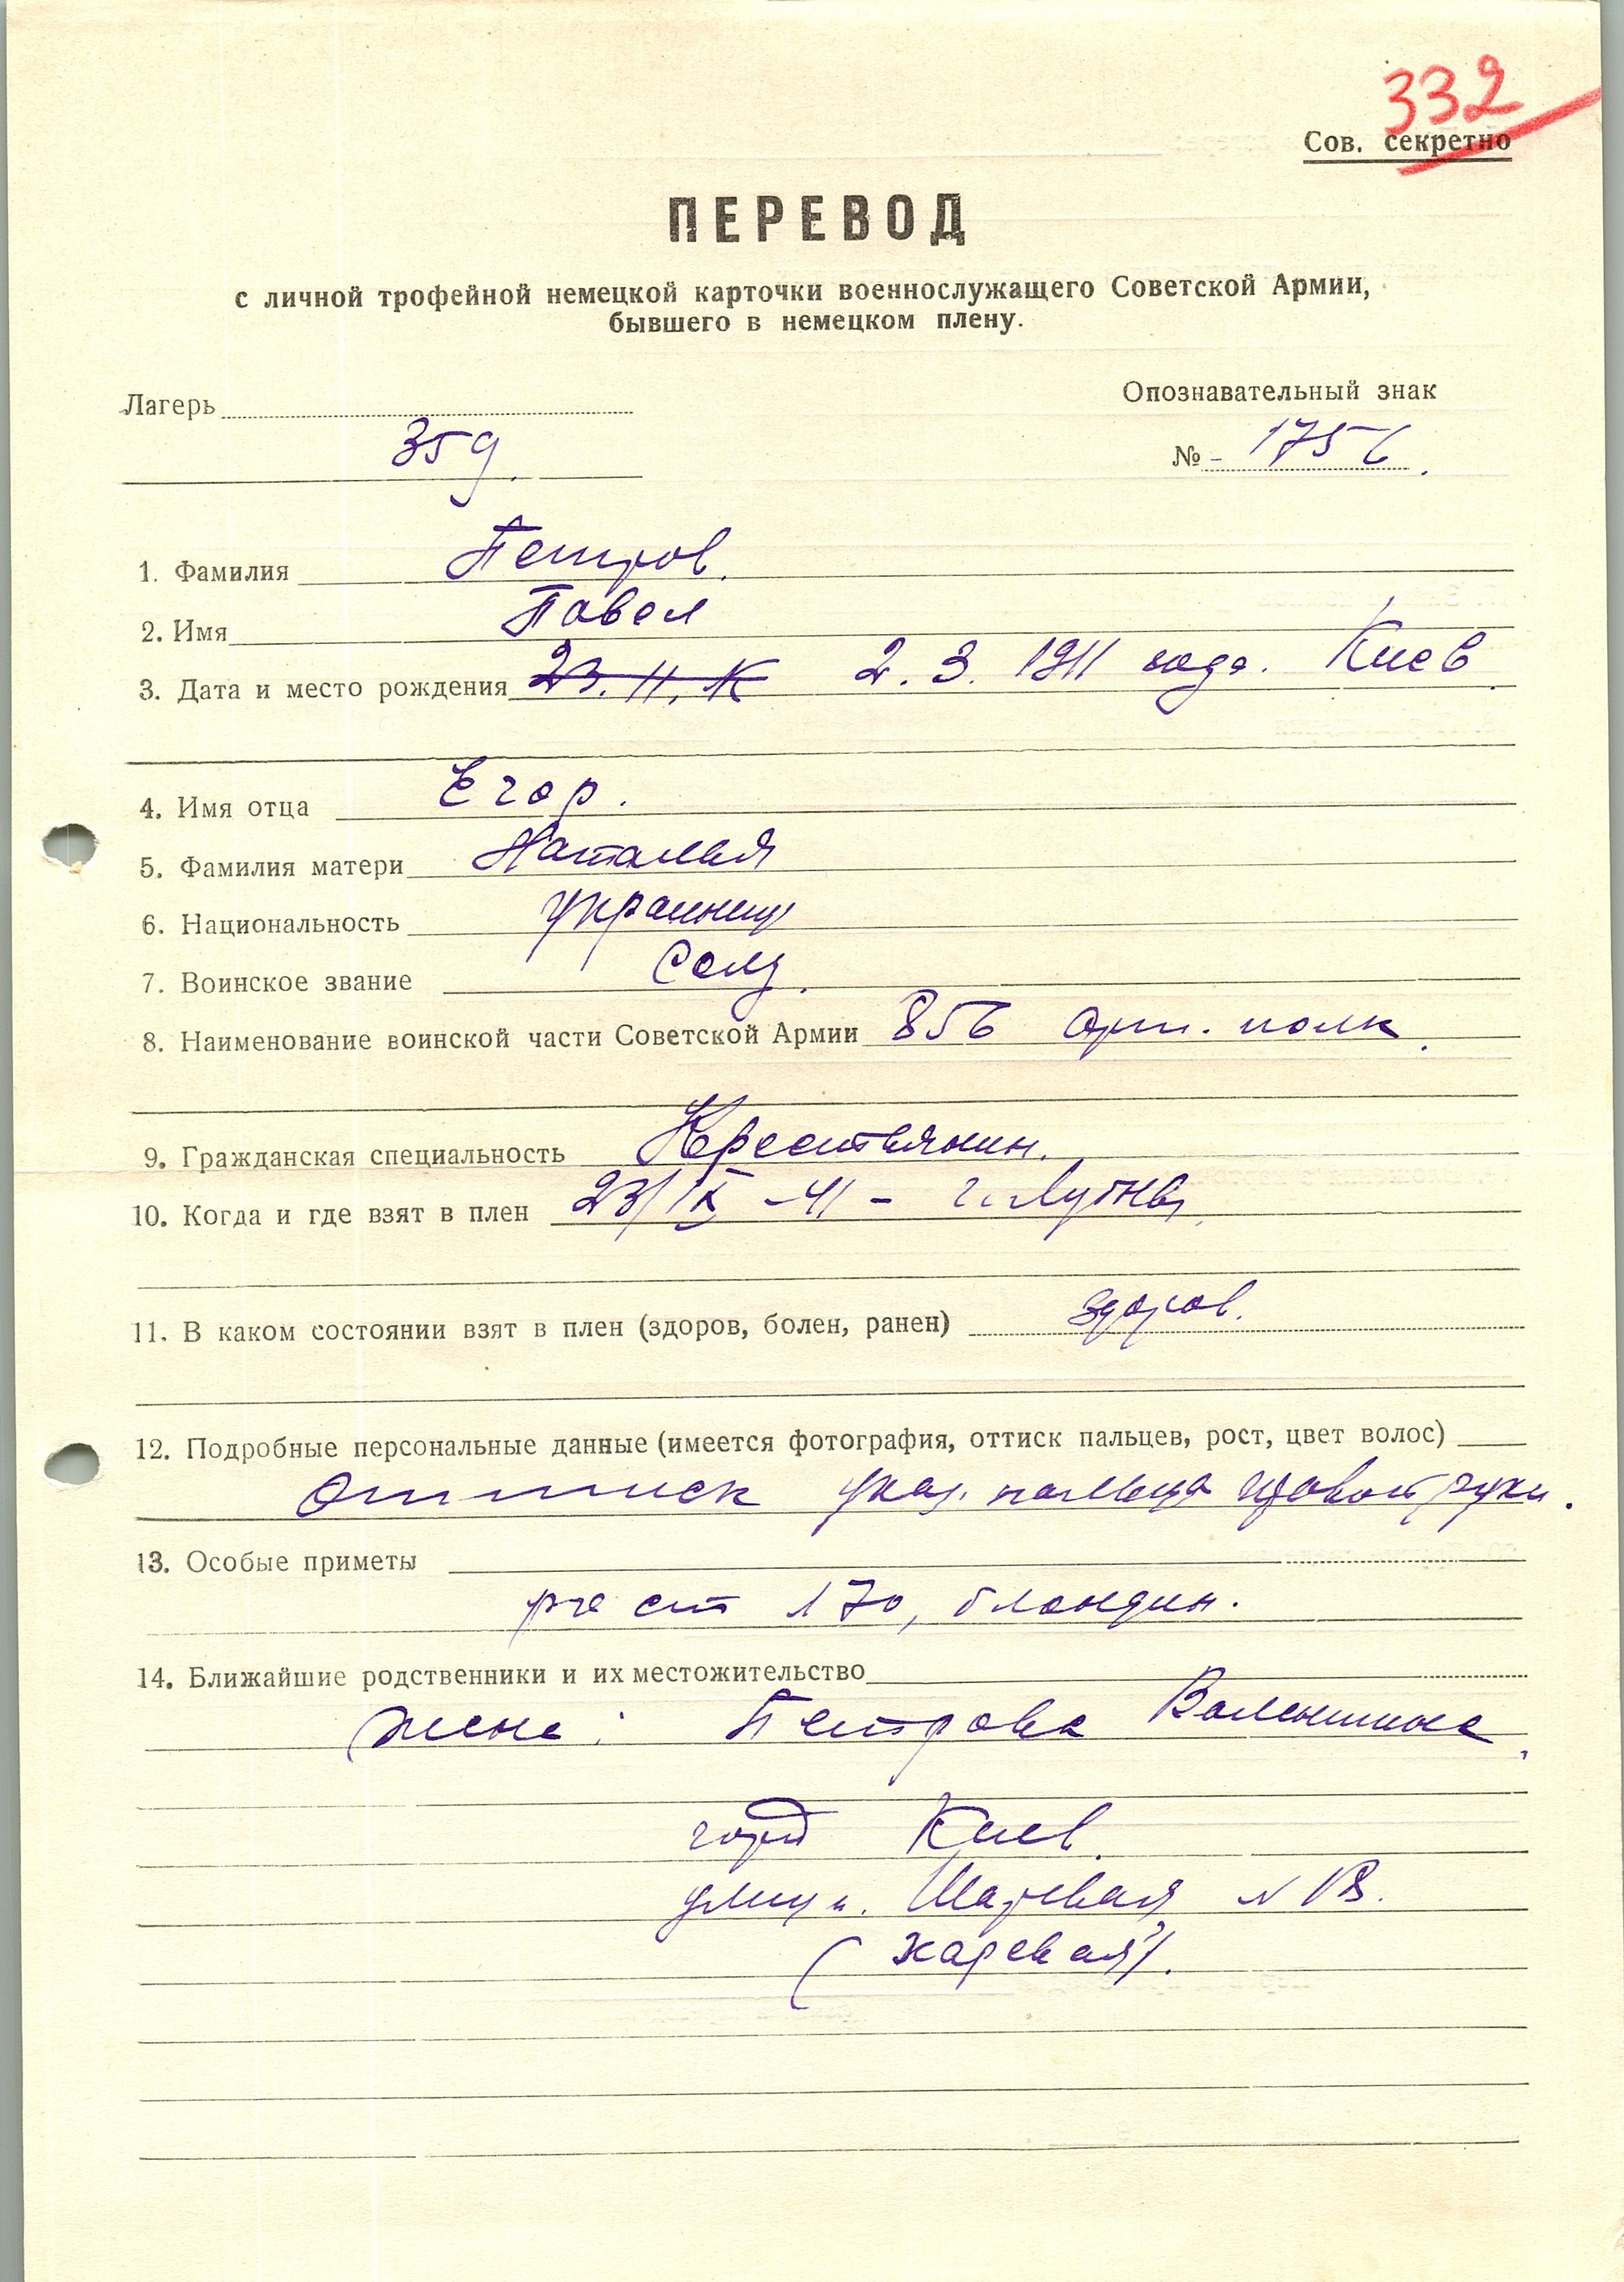 332
Сов. секретно
ПЕРЕВОД
с личной трофейной немецкой карточки военнослужащего Советской Армии,
бывшего в немецком плену.
Лагерь
Опознавательный знак
359.
№ - 1756.
1. Фамилия Петров.
2. Имя Павел
3. Дата и место рождения 23. 11. К 2. 3. 1911 года. Киев.
4. Имя отца Егор.
5. Фамилия матери Наталья
6. Национальность украинец
7. Воинское звание Солд.
8. Наименование воинской части Советской Армии 856 арт. полк.
9. Гражданская специальность Крестьянин.
10. Когда и где взят в плен 23/IX -41 - г. Лубны
11. В каком состоянии взят в плен (здоров, болен, ранен) здоров.
12. Подробные персональные данные (имеется фотография, оттиск пальцев, рост, цвет волос)
Оттиск указ. пальца правой руки.
13. Особые приметы
рост 170, блондин.
14. Ближайшие родственники и их местожительство
жена: Петрова Валентина,
город Киев.
улица. №